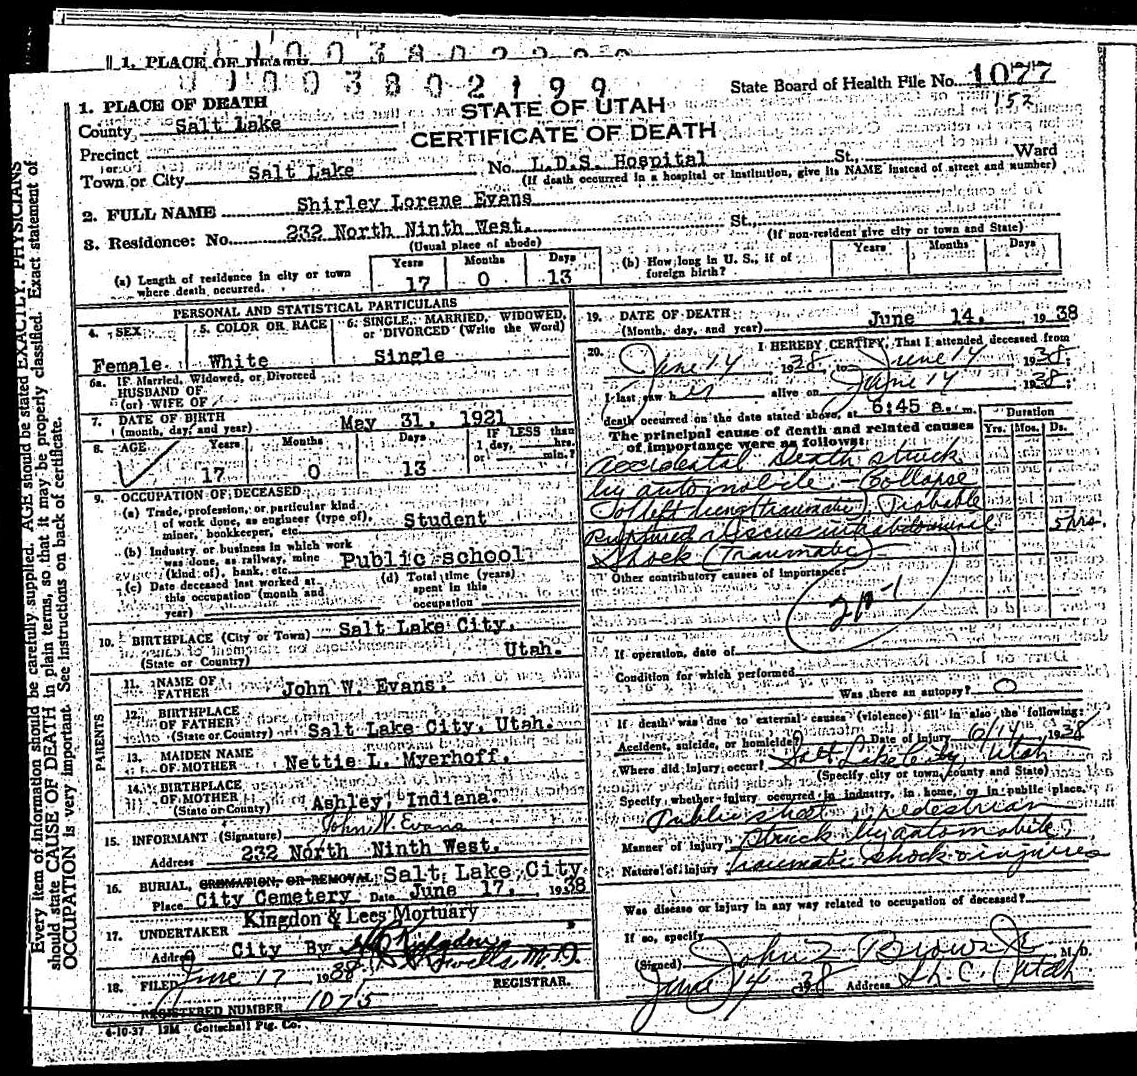 1. PLACE OF DEATH
0 1 0 0 3 8 0 2 1 9 9
State Board of Health File No. 1077
152
1. PLACE OF DEATH
STATE OF UTAH
County Salt Lake
CERTIFICATE OF DEATH
Precinct
or
Town or City Salt Lake No. L.D.S. Hospital St., Ward
(If death occurred in a hospital or institution, give its NAME instead of street and number)
2. FULL NAME Shirley Lorene Evans
3. Residence: No. 232 North Ninth West. St.,
(Usual place of abode) (If non-resident give city or town and State)
(a) Length of residence in city or town where death occurred. Years 17 Months 0 Days 13
(b) How long in U. S., if of foreign birth? Years Months Days
PERSONAL AND STATISTICAL PARTICULARS
4. SEX Female
5. COLOR OR RACE White
6. SINGLE, MARRIED, WIDOWED, or DIVORCED (Write the Word) Single
6a. If Married, Widowed, or Divorced
HUSBAND OF
(or) WIFE OF
7. DATE OF BIRTH
(month, day, and year) May 31, 1921
8. AGE Years 17 Months 0 Days 13 IF LESS than 1 day, hrs. or min.?
9. OCCUPATION OF DECEASED
(a) Trade, profession, or particular kind
of work done, as engineer (type of), Student
miner, bookkeeper, etc.
(b) Industry or business in which work
was done, as railway, mine Public school
(kind of), bank, etc.
(c) Date deceased last worked at
this occupation (month and
year)
(d) Total time (years)
spent in this
occupation
10. BIRTHPLACE (City or Town) Salt Lake City,
(State or Country) Utah.
PARENTS
11. NAME OF
FATHER John W. Evans.
12. BIRTHPLACE
OF FATHER
(State or Country) Salt Lake City, Utah.
13. MAIDEN NAME
OF MOTHER Nettie L. Myerhoff.
14. BIRTHPLACE
OF MOTHER
(State or County) Ashley, Indiana.
15. INFORMANT (Signature) John W. Evans
Address 232 North Ninth West.
16. BURIAL, CREMATION, OR REMOVAL, Salt Lake City
Place City Cemetery Date June 17, 1938
17. UNDERTAKER Kingdon & Lees Mortuary
Address City By Kingdon
M.D.
18. FILED June 17 1938 REGISTRAR.
REGISTERED NUMBER 1075
4-10-37 12M Gottschall Ptg. Co.
19. DATE OF DEATH
(Month, day, and year) June 14, 1938
20. I HEREBY CERTIFY, That I attended deceased from
June 14 1938, to June 14 1938;
I last saw h er alive on June 14 1938;
death occurred on the date stated above, at 6:45 a. m.
The principal cause of death and related causes
of importance were as follows:
Duration
Yrs. Mos. Ds.
Accidental Death struck
by automobile - Collapse
of left lung (traumatic), Probable
ruptured viscus intrabdominal 5 hrs.
Shock (Traumatic)
Other contributory causes of importance:
If operation, date of
Condition for which performed
Was there an autopsy? O
If death was due to external causes (violence) fill in also the following:
Accident, suicide, or homicide? Date of injury 6/14 1938
Where did injury occur? Salt Lake City, Utah
(Specify city or town, county and State)
Specify whether injury occurred in industry, in home, or in public place.
Public street pedestrian
Manner of injury struck by automobile
Nature of injury traumatic shock injuries
Was disease or injury in any way related to occupation of deceased?
If so, specify
(Signed) John Z Brown Jr M. D.
June 14 1938 Address S.L.C. Utah
Every item of information should be carefully supplied. AGE should be stated EXACTLY. PHYSICIANS
should state CAUSE OF DEATH in plain terms, so that it may be properly classified. Exact statement of
OCCUPATION is very important. See instructions on back of certificate.